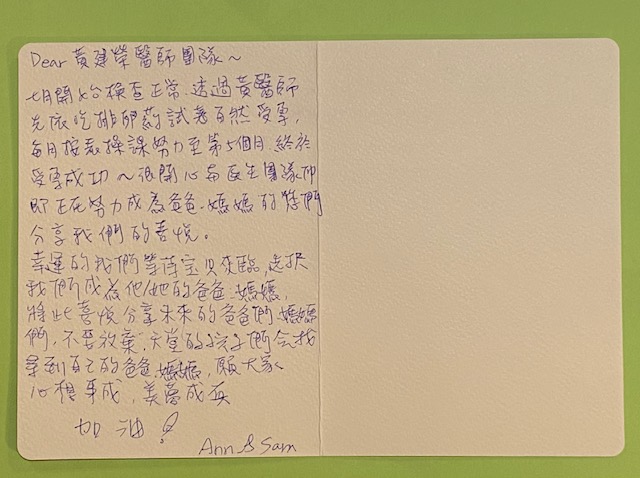 Dear 黃建榮醫師團隊~
七月開始檢查正常,透過黃醫師
先依吃排卵葯試著自然受孕,
每月按表操課努力至第5個月,終於
受孕成功~很開心与医生團隊即
即正在努力成為爸爸.媽媽的您們
分享我們的喜悅。
幸運的我們等待宝貝來臨,选択
我們成為他/她的爸爸.媽媽,
將此喜悅分享未來的爸爸們媽媽
們,不要放棄,天堂的孩子們会找
拿到自己的爸爸.媽媽,願大家
心想事成,美夢成真
加油!
Ann & Sam